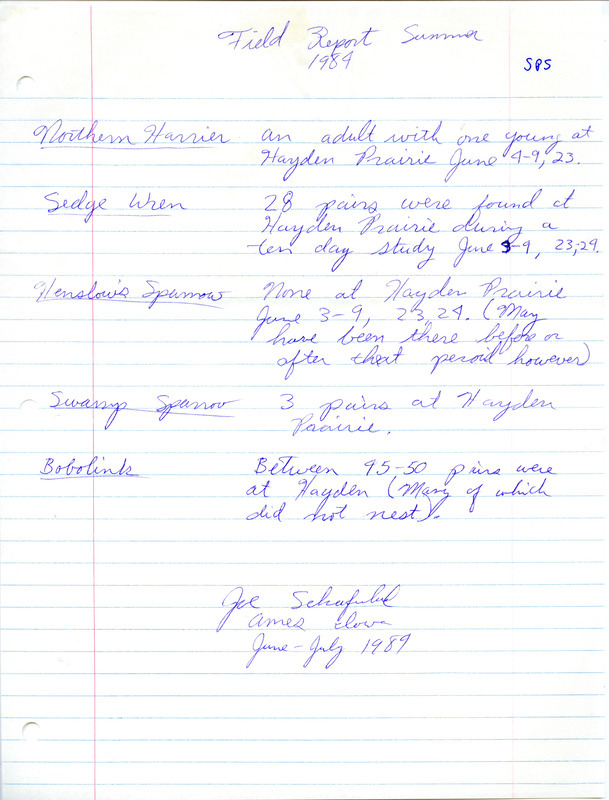 Field Report Summer
1984
SPS
Northern Harrier an adult with one young at
Hayden Prairie June 4-9, 23.
Sedge Wren 28 pairs were found at
Hayden Prairie during a
ten day study June 3-9, 23,24.
Henslow's Sparrow None at Hayden Prairie
June 3-9, 23,24. (May
have been there before or
after that peroid however)
Swamp Sparrow 3 pairs at Hayden
Prairie.
Bobolink Between 45-50 pairs were
at Hayden (Many of which
did not nest).
Joe
Ames Iowa
June-July 1984